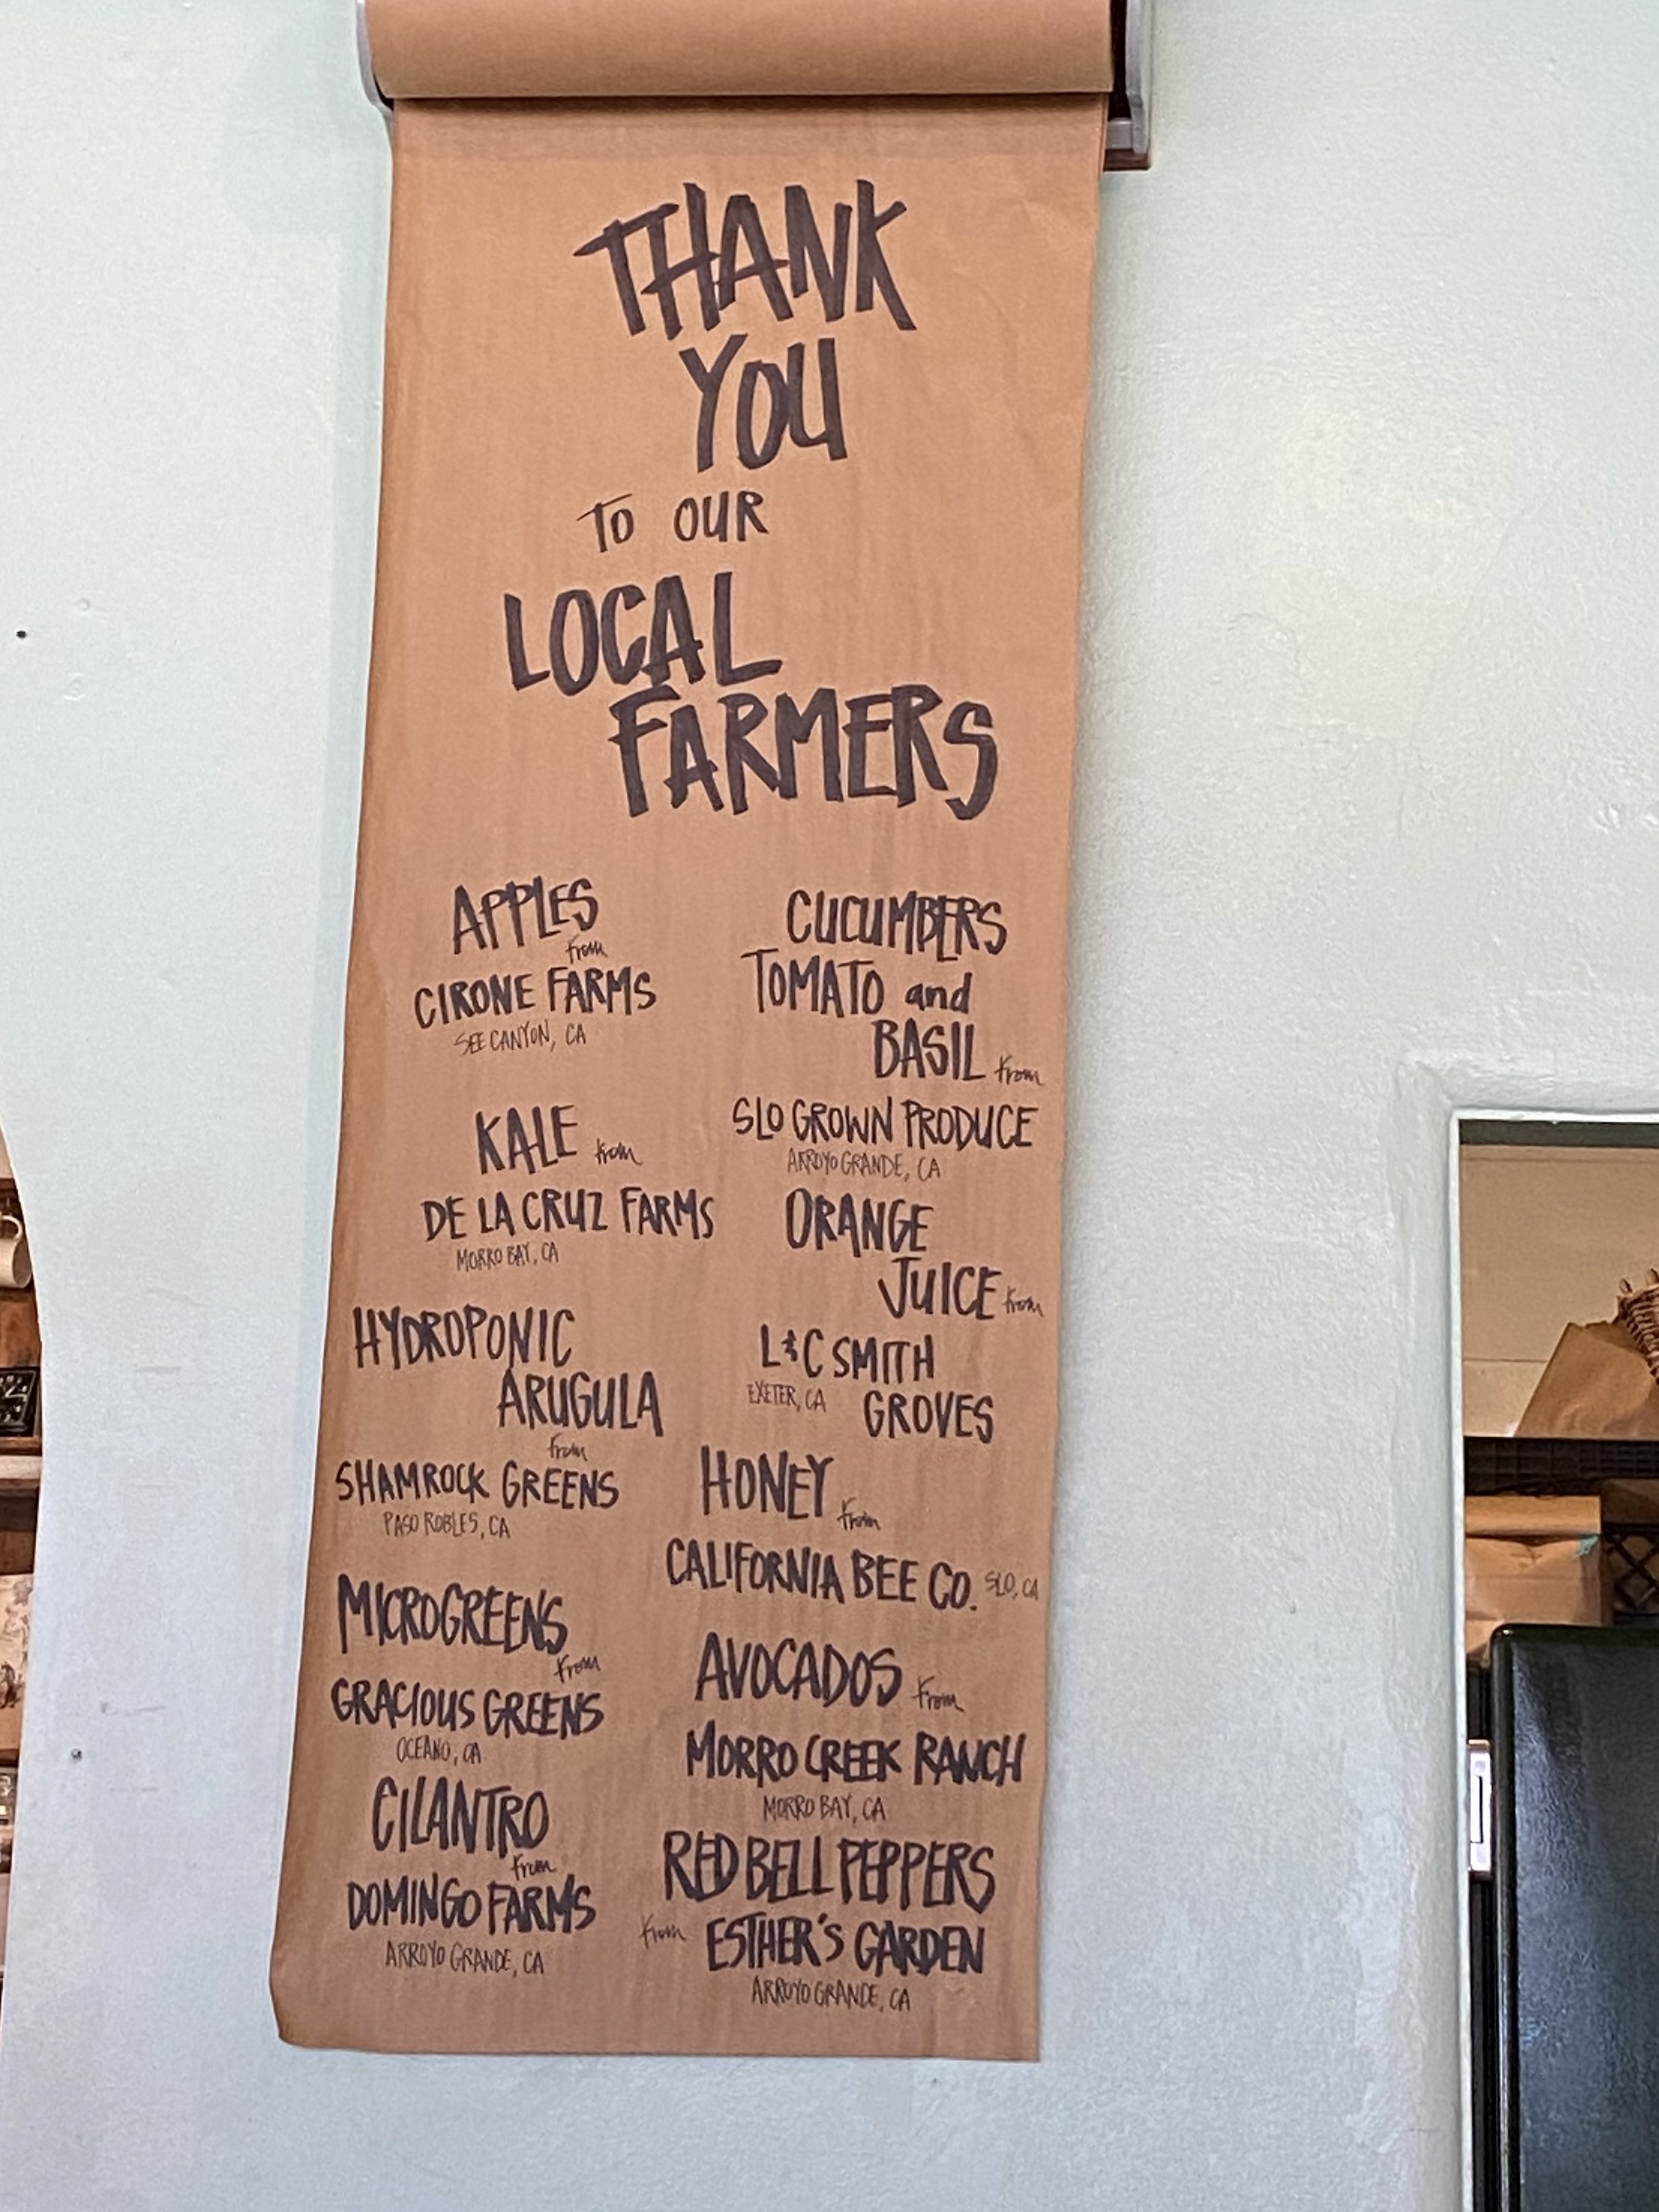 THANK
YOU
TO OUR
LOCAL
FARMERS
APPLES
from
CIRONE FARMS
SEE CANYON, CA
KALE from
DE LA CRUZ FARMS
MORRO BAY, CA
HYDROPONIC
ARUGULA
from
SHAMROCK GREENS
PASO ROBLES, CA
MICROGREENS
from
GRACIOUS GREENS
OCEANO, CA
CILANTRO
from
DOMINGO FARMS
ARROYO GRANDE, CA
CUCUMBERS
TOMATO and
BASIL from
SLO GROWN PRODUCE
ARROYO GRANDE, CA
ORANGE
JUICE from
L&C SMITH
EXETER, CA GROVES
HONEY from
CALIFORNIA BEE CO. SLO, CA
AVOCADOS from
MORRO CREEK RANCH
MORRO BAY, CA
RED BELL PEPPERS
from ESTHER'S GARDEN
ARROYO GRANDE, CA